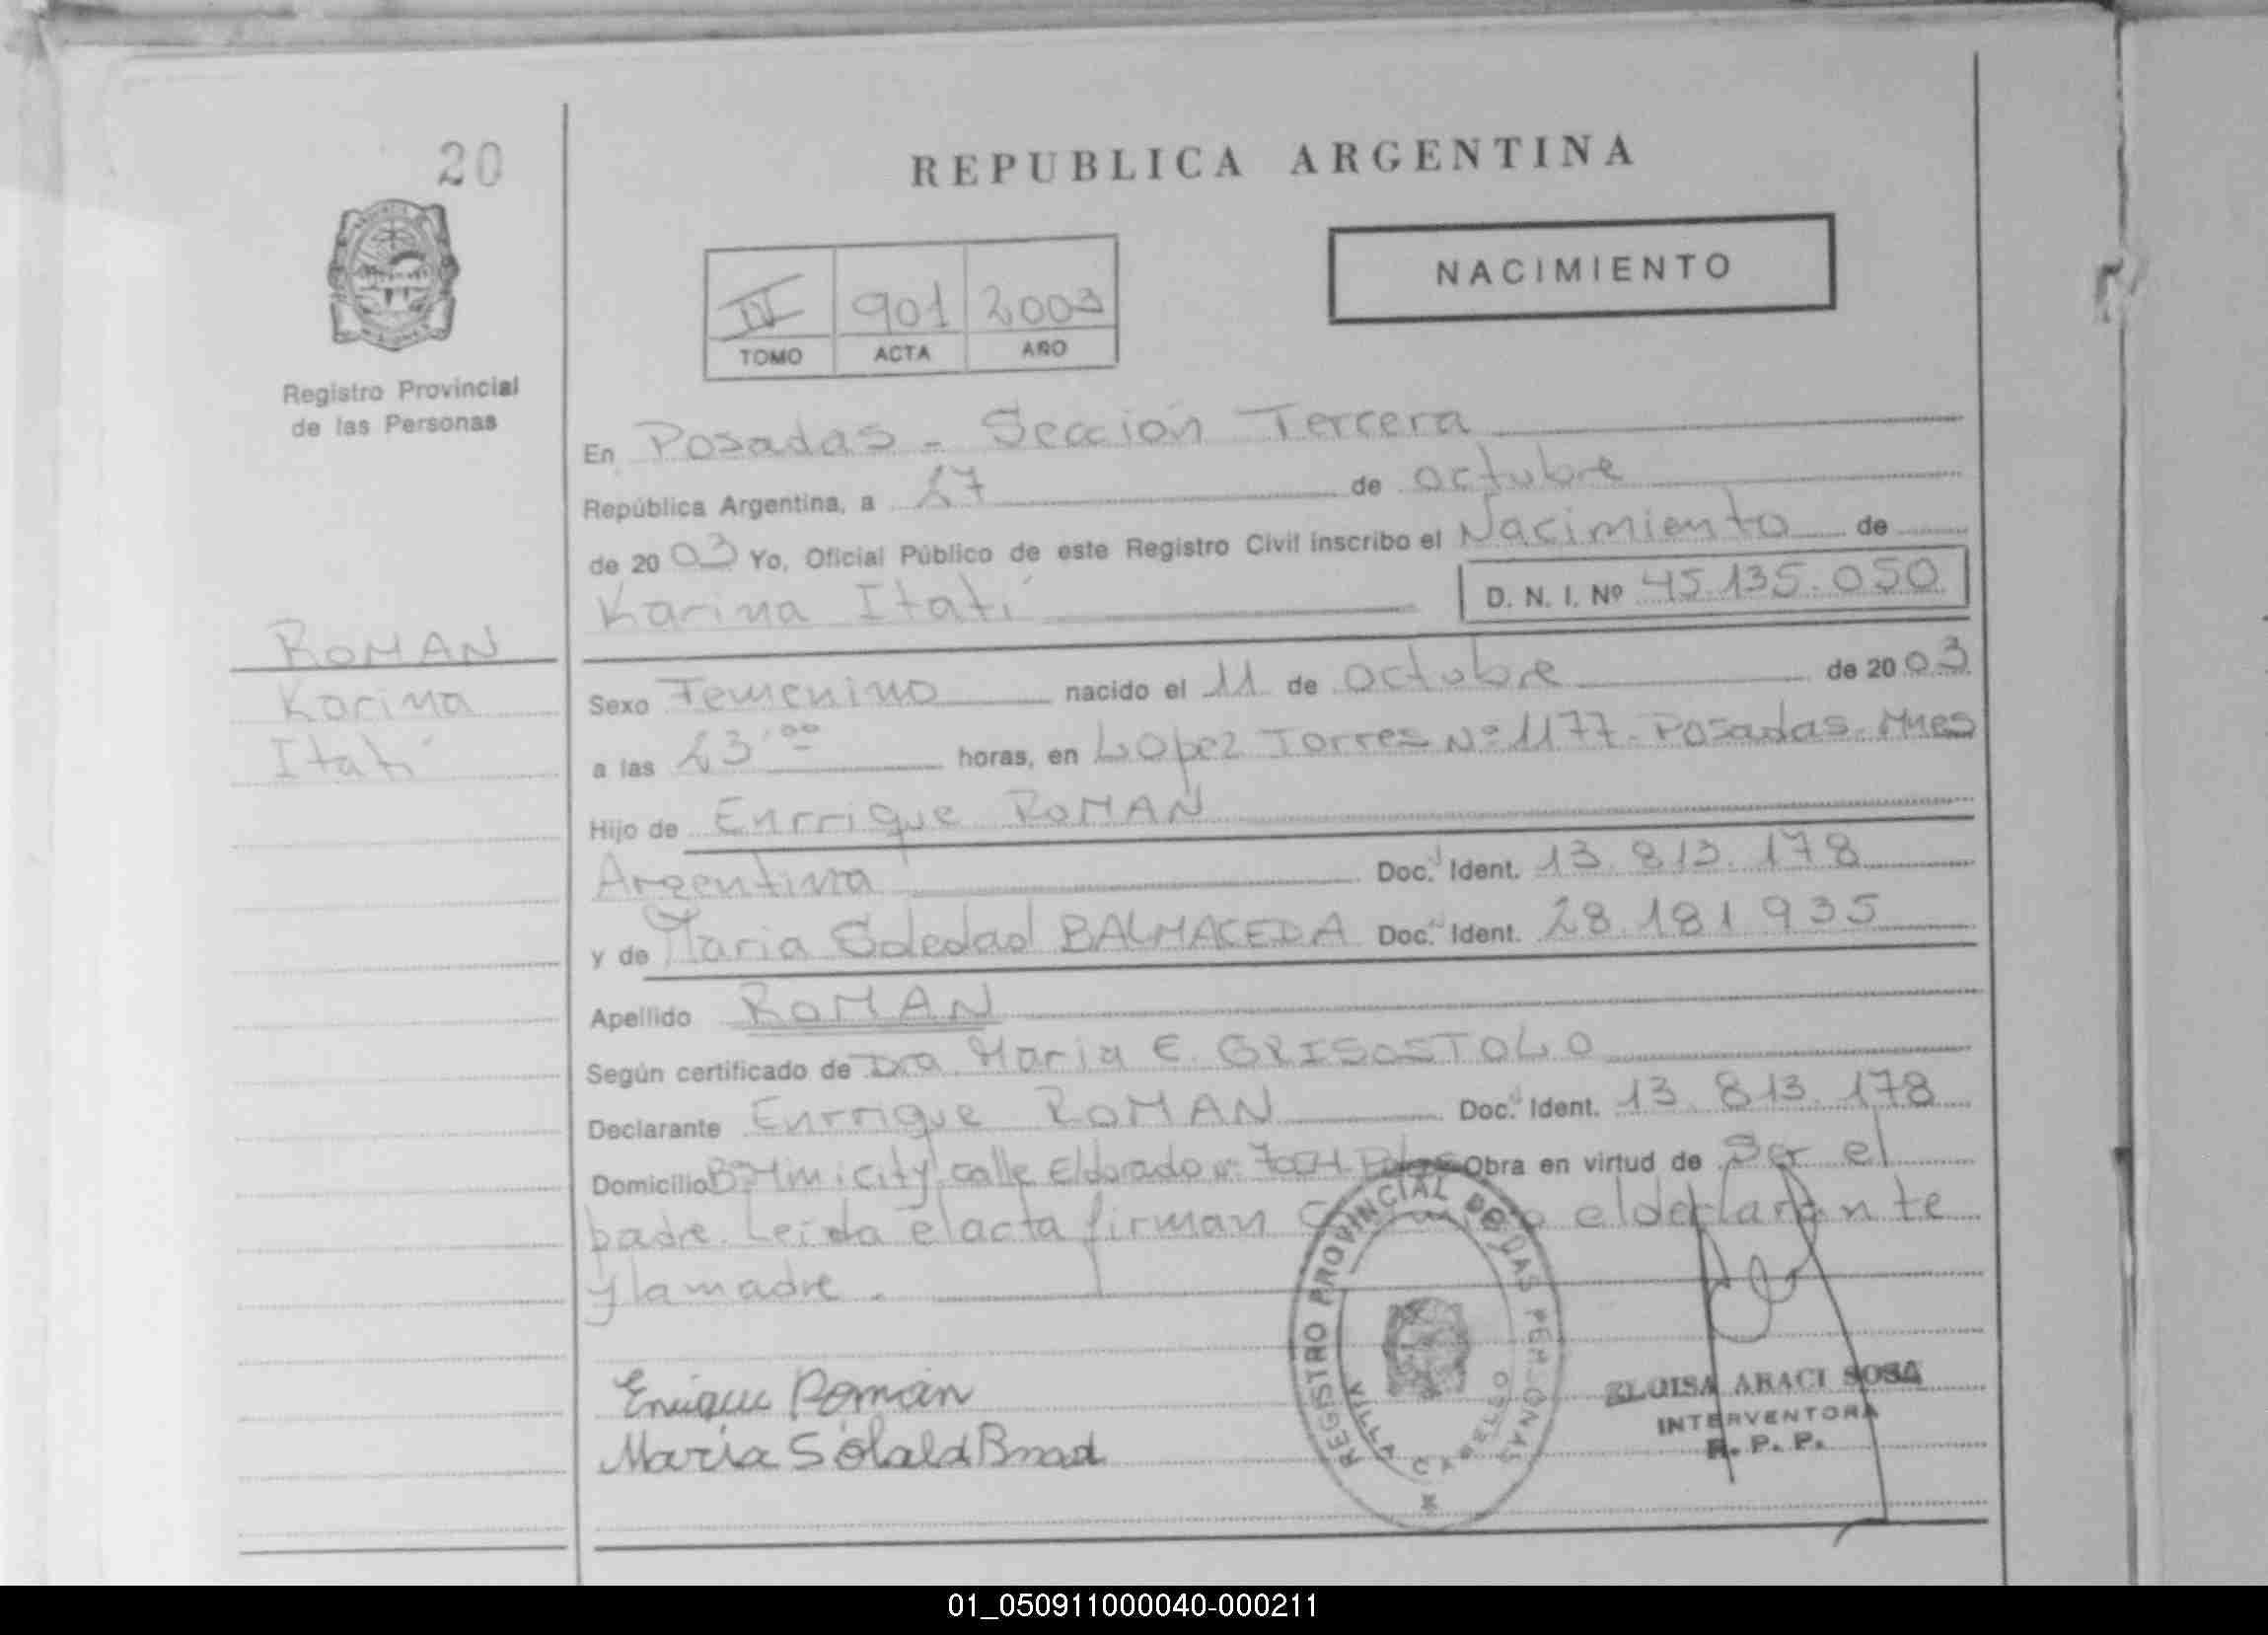 20
REPUBLICA ARGENTINA
NACIMIENTO
IV 901 2003
TOMO ACTA AÑO
Registro Provincial
de las Personas
En Posadas - Sección Tercera
República Argentina, a 27 de octubre
de 2003 Yo, Oficial Público de este Registro Civil inscribo el Nacimiento de
Karina Itatí D. N. I. Nº 45.135.050
ROMAN
Karina
Itatí
Sexo Femenino nacido el 11 de octubre de 2003
a las 23:00 horas, en Lopez Torres Nº 1177 - Posadas - Mnes
Hijo de Enrrique ROMAN
Argentina Doc. Ident. 13.813.178
y de Maria Soledad BALMACEDA Doc. Ident. 28.181.935
Apellido ROMAN
Según certificado de Dra Maria E. GRISOSTOLO
Declarante Enrrique ROMAN Doc. Ident. 13.813.178
Domicilio Bº Mini city calle Eldorado nº Obra en virtud de Ser el
padre. Leída el acta firman el declarante
y la madre.
REGISTRO PROVINCIAL DE LAS PERSONAS
VILLA CABELLO
Enrique Román
Maria
ELOISA ARACI SOSA
INTERVENTORA
R. P. P.
01_050911000040-000211